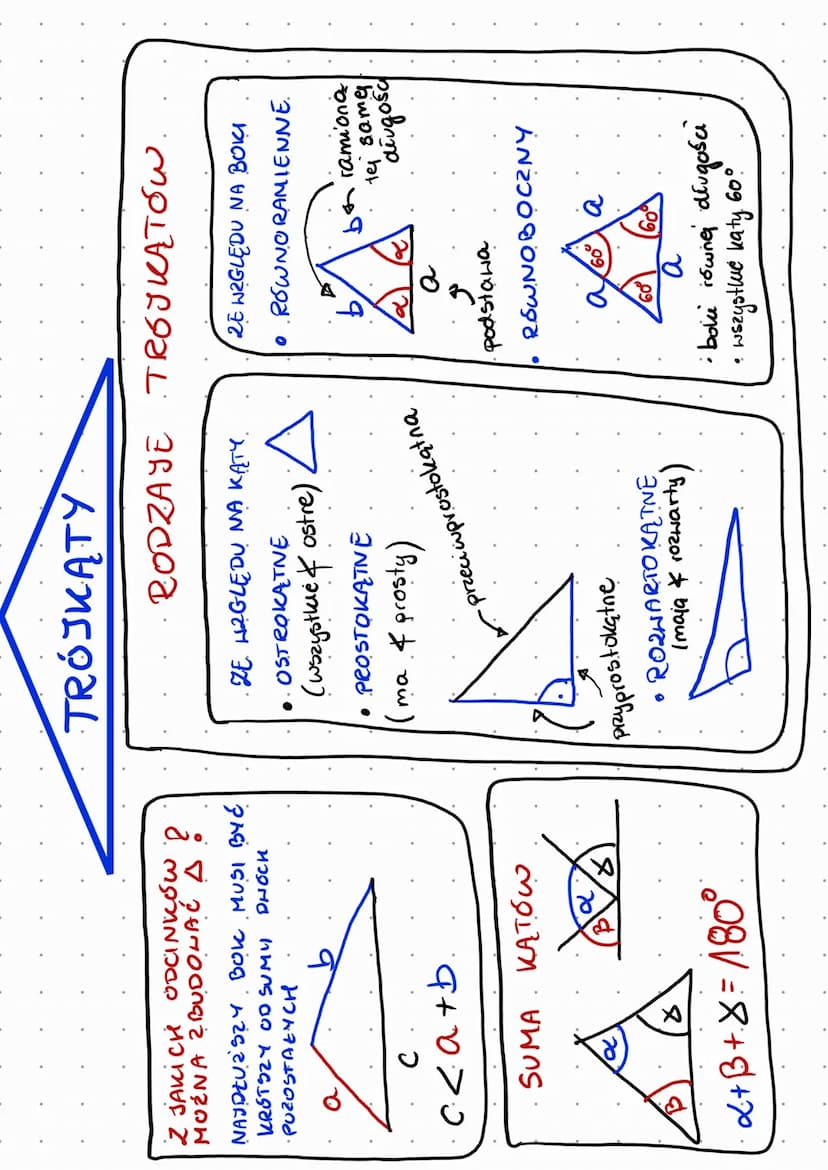 TRÓJKĄTY
Z JAKICH ODCINKÓW
MOŻNA ZBUDOWAĆ △ ?
NAJDŁUŻSZY BOK MUSI BYĆ
KRÓTSZY OD SUMY DWÓCH
POZOSTAŁYCH
a
b
c
c < a + b
SUMA KĄTÓW
α
β
γ
α
β
γ
α + β + γ = 180°
RODZAJE TRÓJKĄTÓW
ZE WZGLĘDU NA KĄTY
• OSTROKĄTNE
(wszystkie ∢ ostre)
• PROSTOKĄTNE
(ma ∢ prosty)
przeciwprostokątna
przyprostokątne
• ROZWARTOKĄTNE
(mają ∢ rozwarty)
ZE WZGLĘDU NA BOKI
• RÓWNORAMIENNE
b
b
ramiona
tej samej
długości
α
α
a
podstawa
• RÓWNOBOCZNY
a
a
60°
60°
60°
a
• boki równej długości
• wszystkie kąty 60°